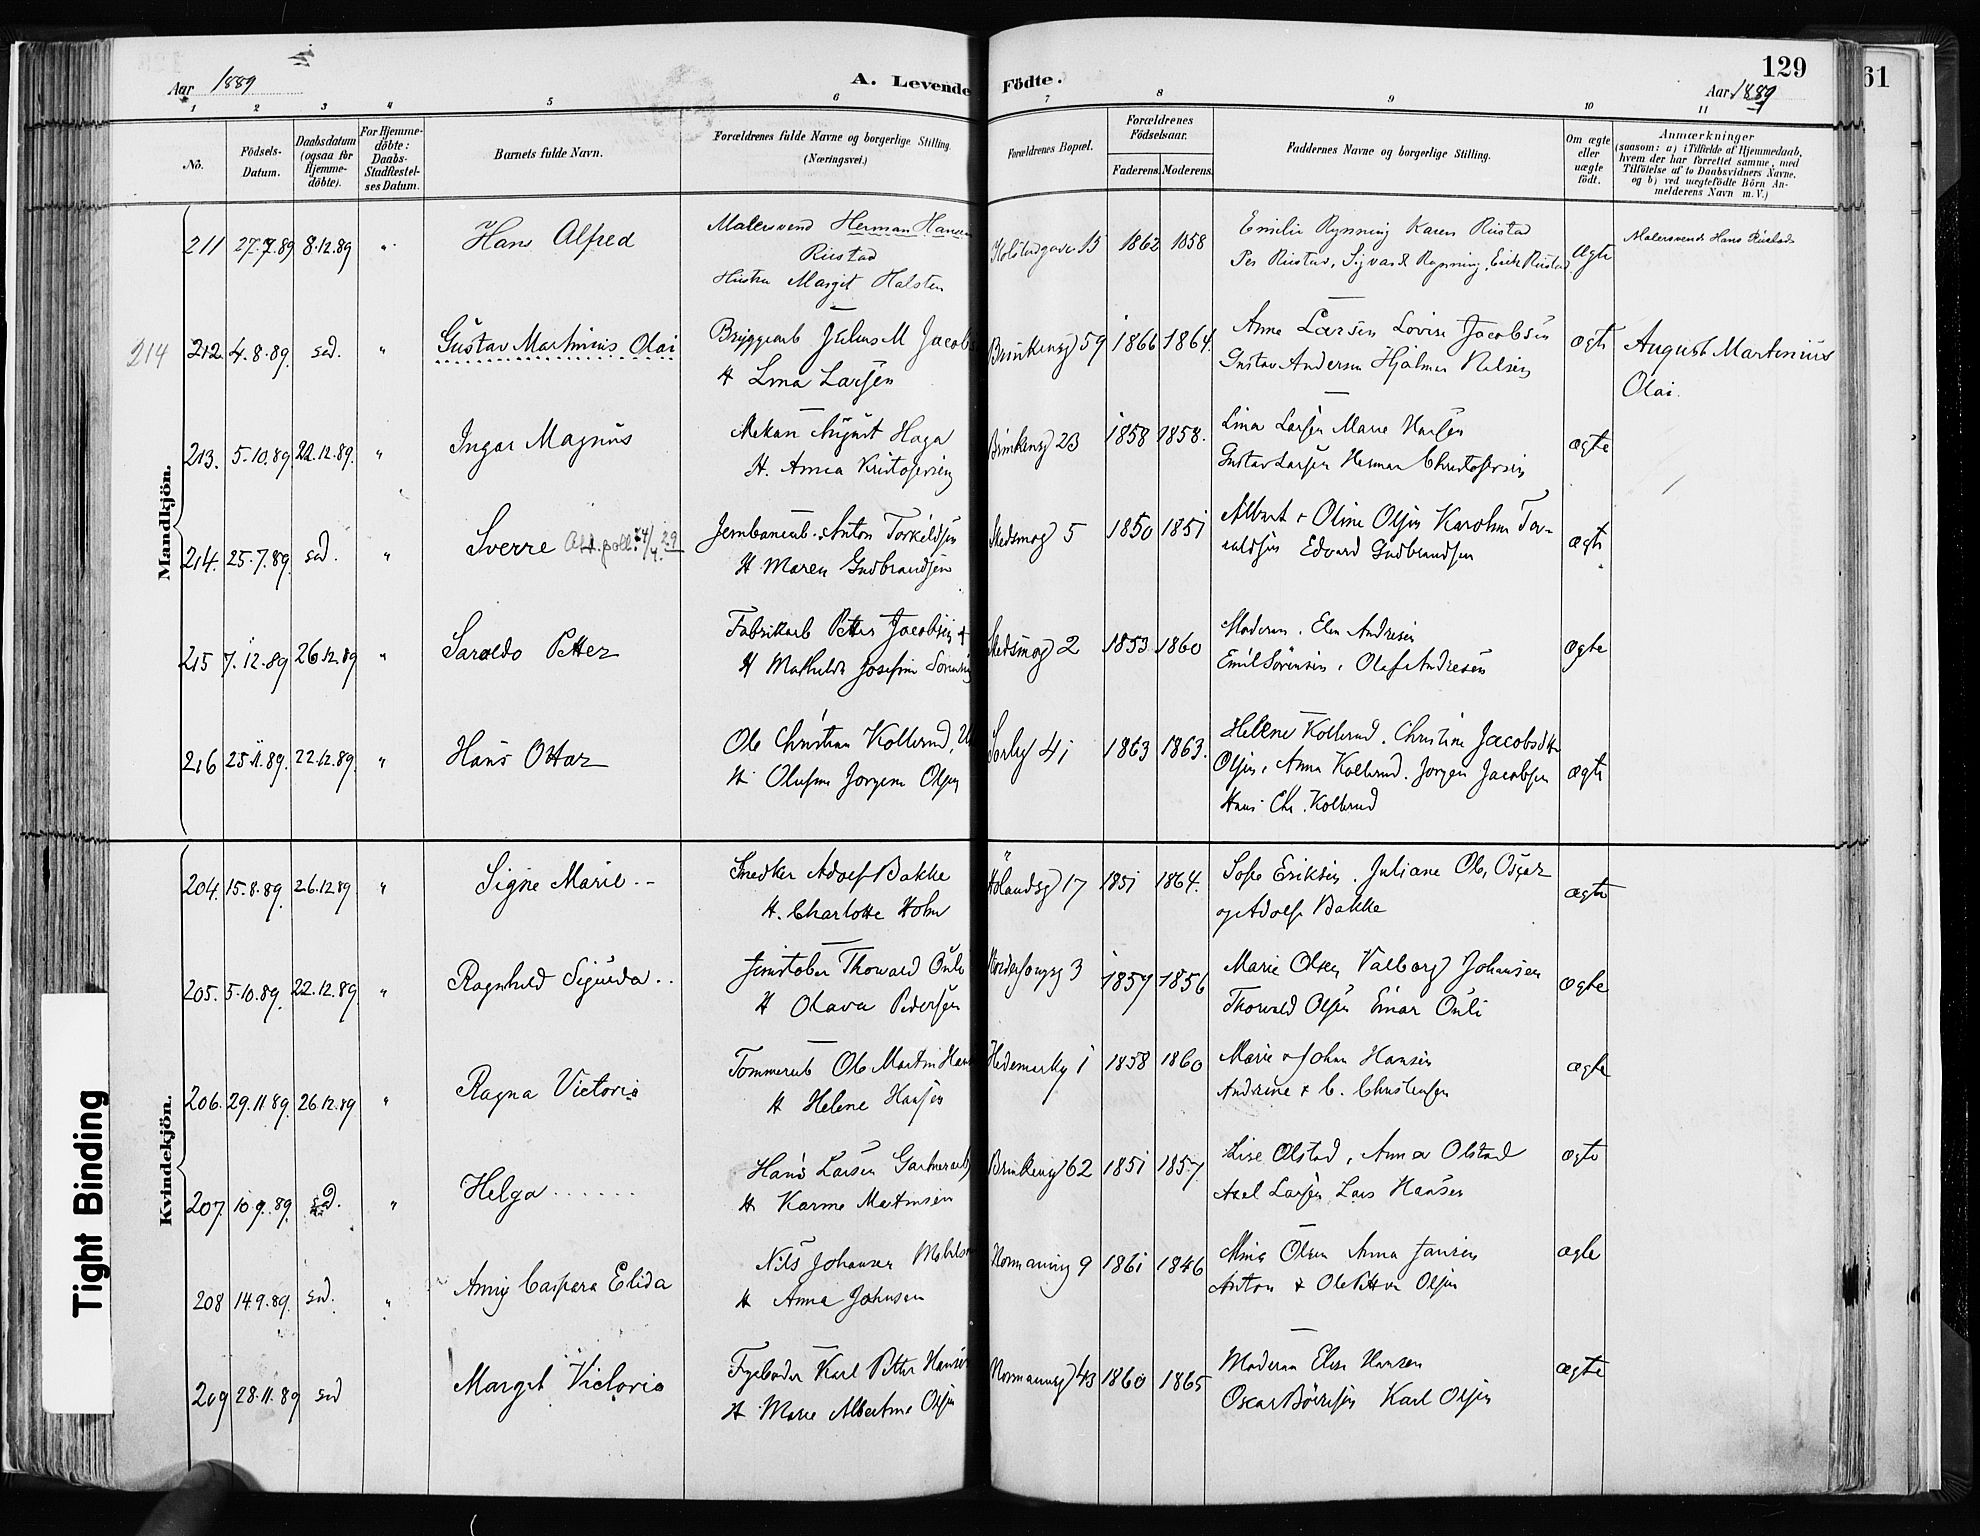 129
61
Aar 1889
A. Levende Födte.
Aar 1889
1 2 3 4 5 6 7 8 9 10 11
No.
Födsels-Datum.
Daabsdatum (ogsaa for Hjemme-döbte).
For Hjemme-döbte: Daabs-Stadfæstel-ses Datum.
Barnets fulde Navn.
Forældrenes fulde Navne og borgerlige Stilling.
(Næringsvei.)
Forældrenes Bopæl.
Forældrenes Födselsaar.
Faderens. Moderens.
Faddernes Navne og borgerlige Stilling.
Om ægte eller uægte födt.
Anmærkninger
(saasom: a) i Tilfælde af Hjemmedaab,
hvem der har forrettet samme, med
Tilföielse af to Daabsvidners Navne,
og b) ved uægtefödte Börn An-
melderens Navn m.V.)
Mandkjön.
211 27.7.89 8.12.89 " Hans Alfred
Malersvend Herman Hansen
Riistad
Hustru Margit Halsten
15 1862 1858
Emilie Rynning Karen Riistad
Per Riistad, Sigvard Rynning, Erik Riistad
Ægte
Malersvend Hans Riistad
214 212. 4.8.89. sad. " Gustav Martinius Olai
Bryggearb Julius M Jacobs
H Lina Larsen
Brinkensg 59 1866 1864.
Anne Larsen Lovise Jacobsen
Gustav Andersen Hjalmar Nilsen
ægte
August Martinius
Olai.
213. 5.10.89. 22.12.89. " Ingar Magnus
Mekan August Haga
H. Anna Kristofersen
Brinkensg 23 1858 1858.
Lina Larsen Marie Hansen
Gustav Larsen Herman Christofersen
ægte
214. 25.7.89. sad. " Sverre
Jernbanearb. Anton Torkeldsen
H Maren Gudbrandsen
Skedsmog 5 1850 1851
Albert + Oline Olsen Karoline Tor-
keldsen Edvard Gudbrandsen
ægte
215 7.12.89 26.12.89 " Saraldo Petter
Fabrikarb Petter Jacobsen +
H Mathilde Josefine Sörensen
Skedsmog 2 1853 1860
Moderen, Elen Andresen
Emil Sörensen, Olaf Andresen
ægte
216 25.11.89. 22.12.89. " Hans Ottar
Ole Christian Kollerud,
H. Olufine Jorgine Olsen
Sorbyg 41 1863 1863.
Helene Kollerud. Christine Jacobsen
Olsen, Anna Kollerud. Jorgen Jacobsen
Hans Chr. Kollerud
ægte
Kvindekjön.
204. 15.8.89. 26.12.89 " Signe Marie
Snedker Adolf Bakke
H. Charlotte Holm
Hölandsg 17 1851 1864.
Sofie Eriksen. Juliane Ols, Oscar
og Adolf Bakke
ægte
205. 5.10.89. 22.12.89 " Ragnhild Sigurda
Jernstöber Thorvald Ónli
H Olava Pedersen
3 1859 1856
Marie Olsen Valborg Johansen
Thorvald Olsen Einar Ónli
ægte
206. 29.11.89. 26.12.89 " Ragna Victoria
Tömmerarb Ole Martin Hans
H Helene Hansen
Hedemarksg 1 1858 1860
Marie + John Hansen
Andrine + C. Christensen
ægte
207. 10.9.89. sad. " Helga
Hans Larsen Gartnerarb
H Karine Martinsen
Brinkensg 62 1851 1857
Lise Olstad, Anna Olstad
Axel Larsen Lars Hansen
ægte
208 14.9.89. sad. " Anny Caspara Elida
Nils Johansen
H Anna Johnsen
Normannsg 9 1861 1846
Mina Olsen Anna Jansen
Anton + Ole Petter Olsen
ægte
209 28.11.89 sad Margit Victoria
Fyrböder Karl Petter Hansen
H Marie Albertine Olsen
Normannsg 43 1860 1865
Moderen Elise Hansen
Oscar Börresen Karl Olsen
ægte
Tight Binding